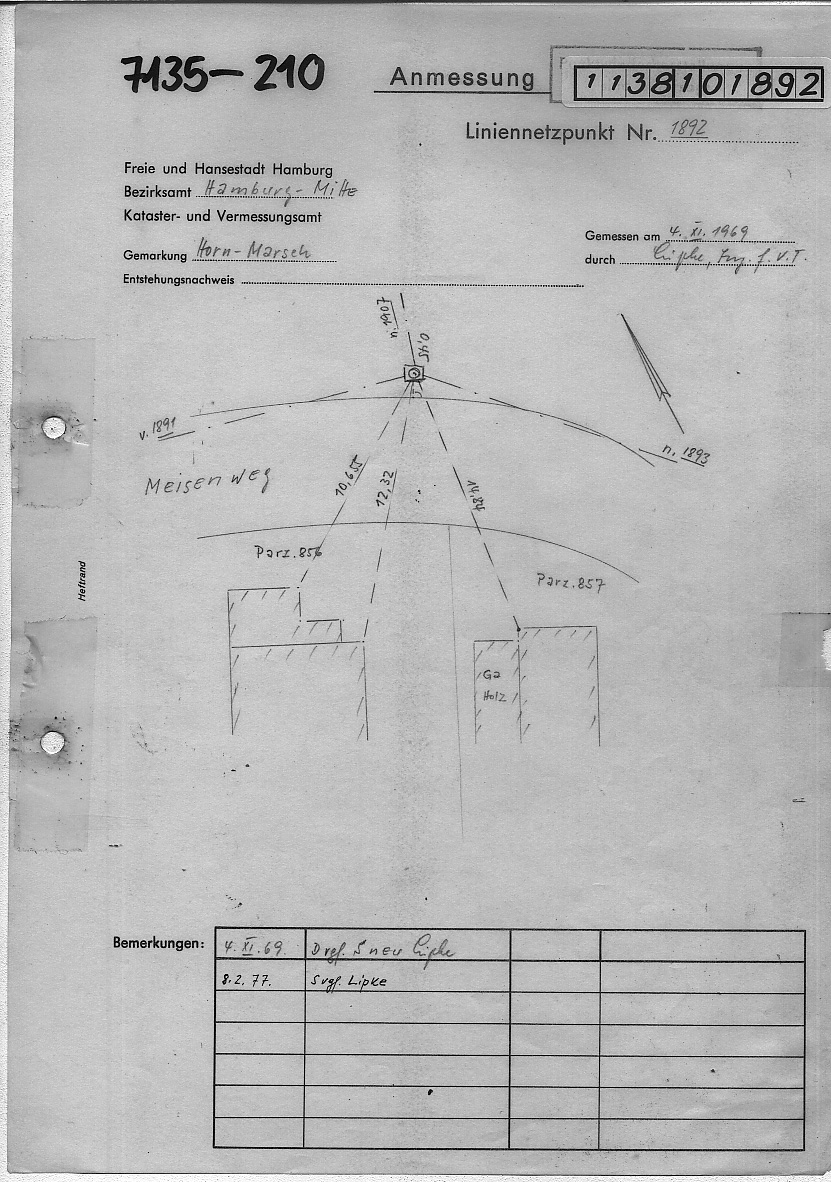 7135-210
Anmessung
1138101892
Liniennetzpunkt Nr. 1892
Freie und Hansestadt Hamburg
Bezirksamt Hamburg-Mitte
Kataster- und Vermessungsamt
Gemarkung Horn-Marsch
Entstehungsnachweis
Gemessen am 4. XI. 1969
durch Lipke,
n. 1907
0,45
v. 1891
n. 1893
Meisenweg
10,655
12,32
14,84
Parz. 856
Parz. 857
Ga
Holz
Heftrand
Bemerkungen:
4. XI. 69. Drgf. S neu Lipke
8.2.77. Svgf. Lipke